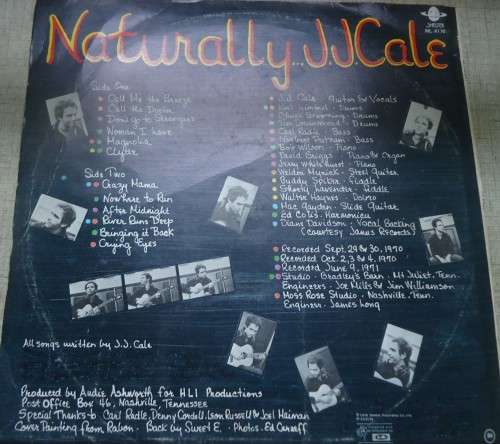 Naturally... J.J. Cale
SHELTER
Side One
Call Me the Breeze
Call the Doctor
Don't go to Strangers
Woman I Love
Magnolia
Clyde
Side Two
Crazy Mama
Nowhere to Run
After Midnight
River Runs Deep
Bringing it Back
Crying Eyes
J.J. Cale - Guitar & Vocals
Karl Himmel - Drums
Chuck Browning - Drums
Tim Drummond - Drums
Carl Radle - Bass
Norbert Putnam - Bass
Bob Wilson - Piano
David Briggs - Piano & Organ
Jerry Whitehurst - Piano
Weldon Myrick - Steel guitar
Buddy Spicher - Fiddle
Shorty Lavender - Fiddle
Walter Haynes - Dobro
Mac Gayden - Slide Guitar
Ed Colis - Harmonica
Diane Davidson - Vocal Backing
(Courtesy Janus Records)
Recorded Sept. 29 & 30, 1970
Recorded Oct. 2, 3 & 4, 1970
Recorded June 9, 1971
Studio - Bradley's Barn - Mt. Juliet, Tenn.
Engineers - Joe Mills & Jim Williamson
Moss Rose Studio - Nashville, Tenn.
Engineer - James Long
All songs written by J.J. Cale
Produced by Audie Ashworth for HLI Productions
Post Office Box 46, Nashville, Tennessee
Special Thanks to Carl Radle, Denny Cordell, Leon Russell & Joel Maiman
Cover Painting from Rabon - Back by Sweet E. - Photos - Ed Caraeff